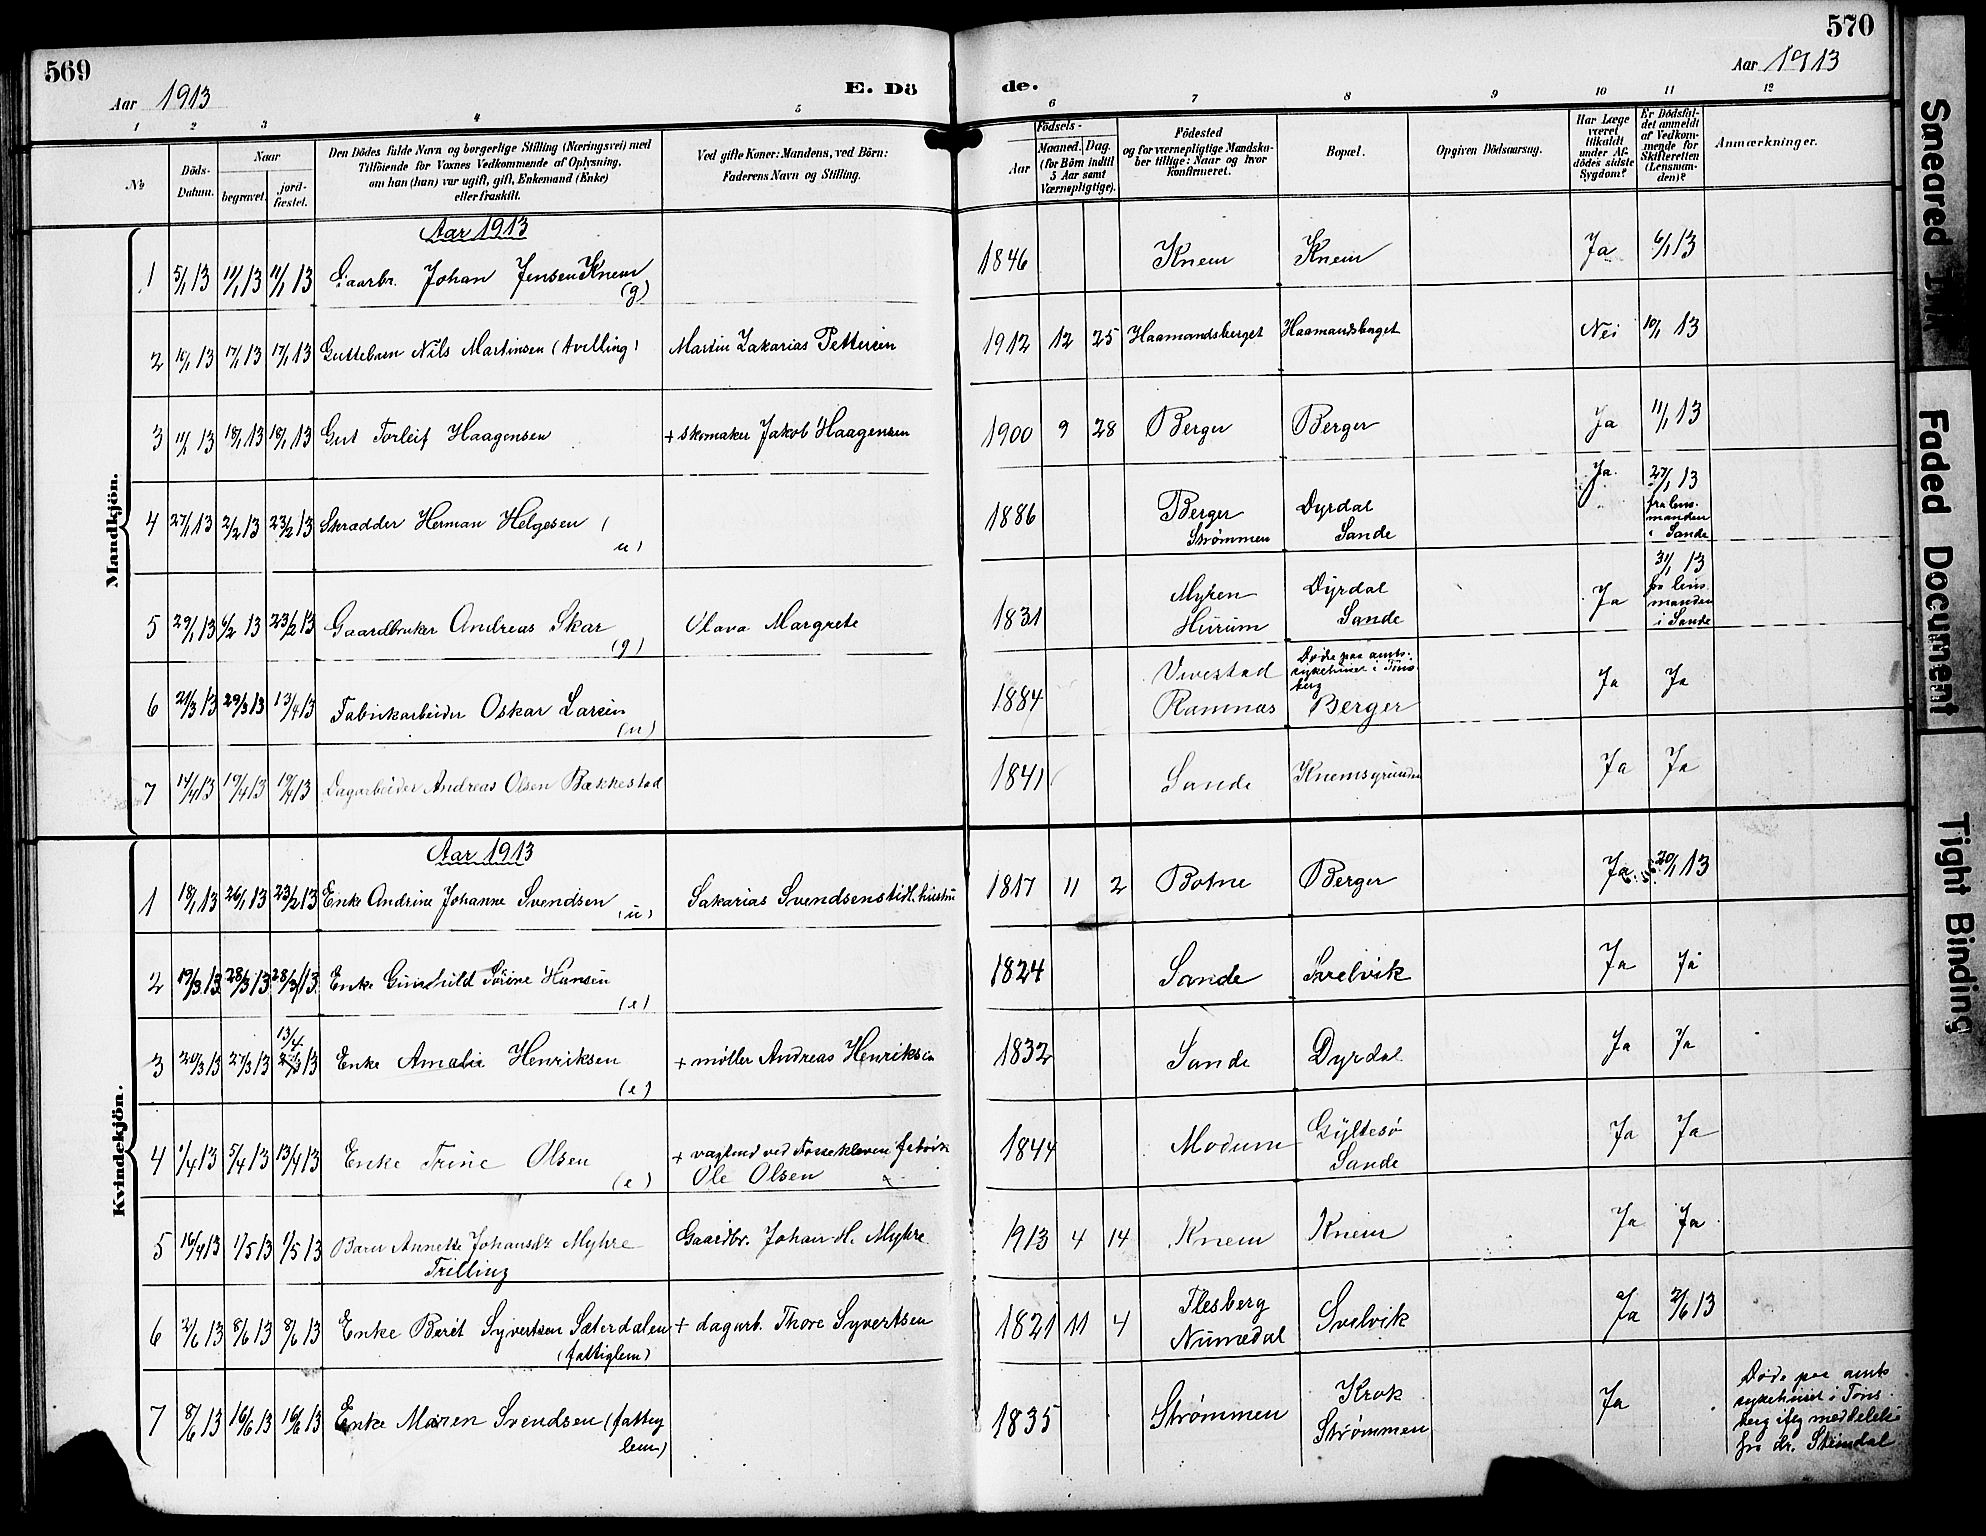 569
Aar 1913
E. Dö
de.
570
Aar 1913
1 2 3 4 5 6 7 8 9 10 11 12
No
Döds-
Datum.
Naar
begravet.
jord-
fæstet.
Den Dödes fulde Navn og borgerlige Stilling (Næringsvei) med
Tilföiende for Voxnes Vedkommende af Oplysning,
om han (hun) var ugift, gift, Enkemand (Enke)
eller fraskilt.
Ved gifte Koner: Mandens, ved Börn:
Faderens Navn og Stilling.
Födsels-
Aar
Maaned. Dag.
(for Börn indtil
5 Aar samt
Værnepligtige).
Födested
og for værnepligtige Mandska-
ber tillige: Naar og hvor
konfirmeret.
Bopæl.
Opgiven Dödsaarsag.
Har Læge
været
tilkaldt
under Af-
dödes sidste
Sygdom?
Er Dödsfal-
det anmeldt
af Vedkom-
mende for
Skifteretten
(Lensman-
den)?
Anmerkninger.
Mandkjön.
Aar 1913
1 5/1 13 11/1 13 11/1 13 Gaarbr. Johan Jensen Knem (g) 1846 Knem Knem Ja 6/1 13
2 10/1 13 17/1 13 17/1 13 Guttebarn Nils Martinsen (tvilling) Martin Zakarias Pettersen 1912 12 25 Haamandsberget Haamandsberget Nei 10/1 13
3 11/1 13 18/1 13 18/1 13 Gut Torleif Haagensen + skomaker Jakob Haagensen 1900 9 28 Berger Berger Ja 11/1 13
4 27/1 13 2/2 13 23/2 13 Skrædder Herman Helgesen (u) 1886 Berger Strømmen Dyrdal Sande Ja 27/1 13 fra lens-
manden
i Sande
5 29/1 13 6/2 13 23/2 13 Gaardbruker Andreas Skar (g) Olava Margrete 1831 Myren Hurum Dyrdal Sande Ja 31/1 13 fra lens-
manden
i Sande
6 21/3 13 29/3 13 13/4 13 Fabrikarbeider Oskar Larsen (u) 1884 Vivestad Ramnæs Døde paa amts-
sykehuset i Tøns-
berg
Berger Ja Ja
7 14/4 13 19/4 13 19/4 13 Dagarbeider Andreas Olsen Bækkestad 1841 Sande Knemsgrunden Ja Ja
Kvindekjön.
Aar 1913
1 18/1 13 26/1 13 23/2 13 Enke Andrine Johanne Svendsen (u) Sakarias Svendsens tidl. hustru 1817 11 2 Botne Berger Ja 20/1 13
2 19/3 13 28/3 13 28/3 13 Enke Gunhild Hansen (e) 1824 Sande Svelvik Ja Ja
3 20/3 13 27/3 13 13/4 13 Enke Amalie Henriksen (e) + møller Andreas Henriksen 1832 Sande Dyrdal Ja Ja
4 1/4 13 5/4 13 13/4 13 Enke Trine Olsen (e) + vagtmd ved Fossekleven fabrik
Ole Olsen 1844 Modum Gyltesø Sande Ja Ja
5 16/4 13 1/5 13 1/5 13 Barn Annette Johansdtr Myhre
Trilling Gaardbr. Johan H. Myhre 1913 4 14 Knem Knem Ja Ja
6 2/6 13 8/6 13 8/6 13 Enke Berit Syvertsen Sæterdalen
(fattiglem) + dagarb. Thore Syvertsen 1821 11 4 Flesberg Numedal Svelvik Ja 2/6 13
7 8/6 13 16/6 13 16/6 13 Enke Maren Svendsen (fattig
lem) 1835 Strømmen Krok Strømmen Ja Døde paa amts
sykehuset i Tøns-
berg iføg meddelelse
fra dr. Steindal
Smeared Ink
Faded Document
Tight Binding